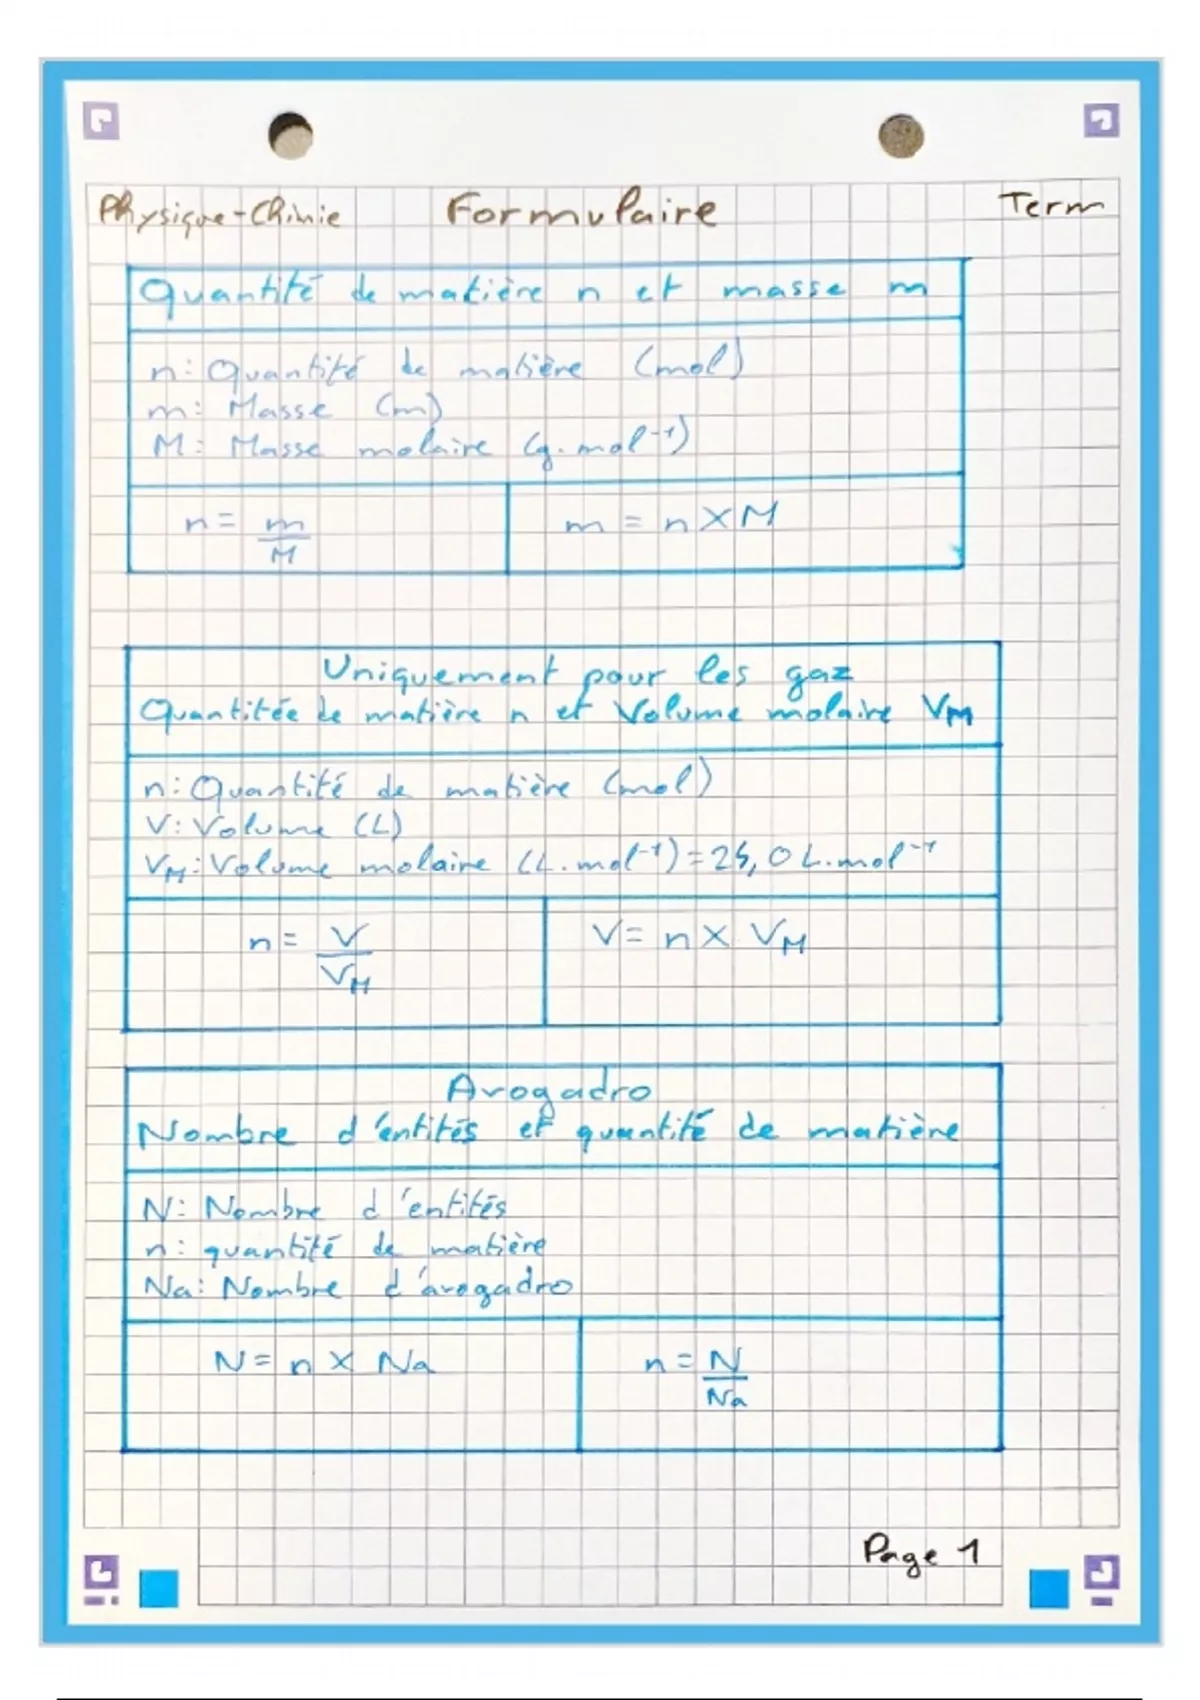 Physique-Chimie Formulaire Term
Quantité de matière n et masse m
n: Quantité de matière (mol)
m: Masse (m)
M: Masse molaire (g.mol⁻¹)
n = m/M
m = n X M
Uniquement pour les gaz
Quantitée de matière n et Volume molaire VM
n: Quantité de matière (mol)
V: Volume (L)
VM: Volume molaire (L.mol⁻¹) = 25,0 L.mol⁻¹
n = V/VM
V = n X VM
Avogadro
Nombre d'entités et quantité de matière
N: Nombre d'entités
n: quantité de matière
Na: Nombre d'avogadro
N = n X Na
n = N/Na
Page 1